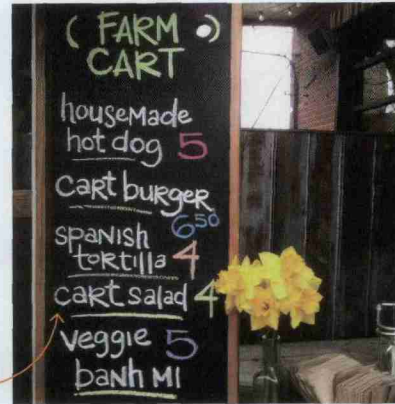 ( FARM )
CART
housemade
hot dog 5
cart burger
650
spanish
tortilla 4
cart salad 4
veggie 5
banh mi